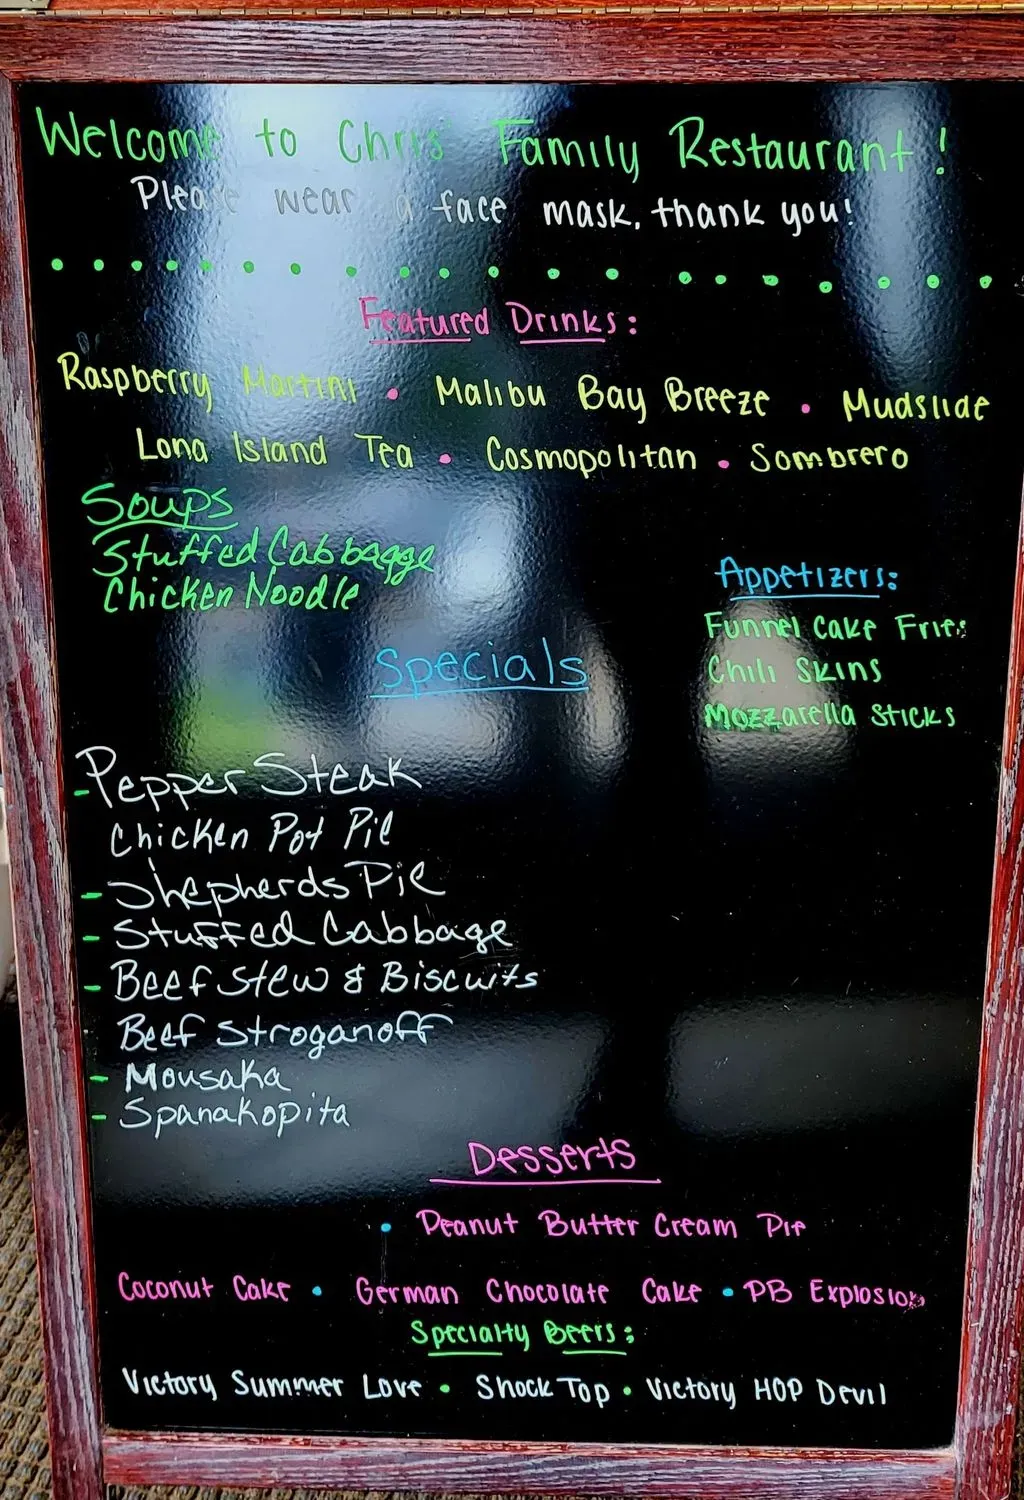 Welcome to Chris' Family Restaurant!
Please wear a face mask, thank you!
Featured Drinks:
Raspberry Martini • Malibu Bay Breeze • Mudslide
Long Island Tea • Cosmopolitan • Sombrero
Soups
Stuffed Cabbagge
Chicken Noodle
Appetizers:
Funnel Cake Fries
Chili Skins
Mozzarella Sticks
Specials
- Pepper Steak
Chicken Pot Pie
- Shepherds Pie
- Stuffed Cabbage
- Beef Stew & Biscuits
Beef Stroganoff
- Mousaka
- Spanakopita
Desserts
• Peanut Butter Cream Pie
Coconut Cake • German Chocolate Cake • PB Explosion
Specialty Beers:
Victory Summer Love • Shock Top • Victory HOP Devil